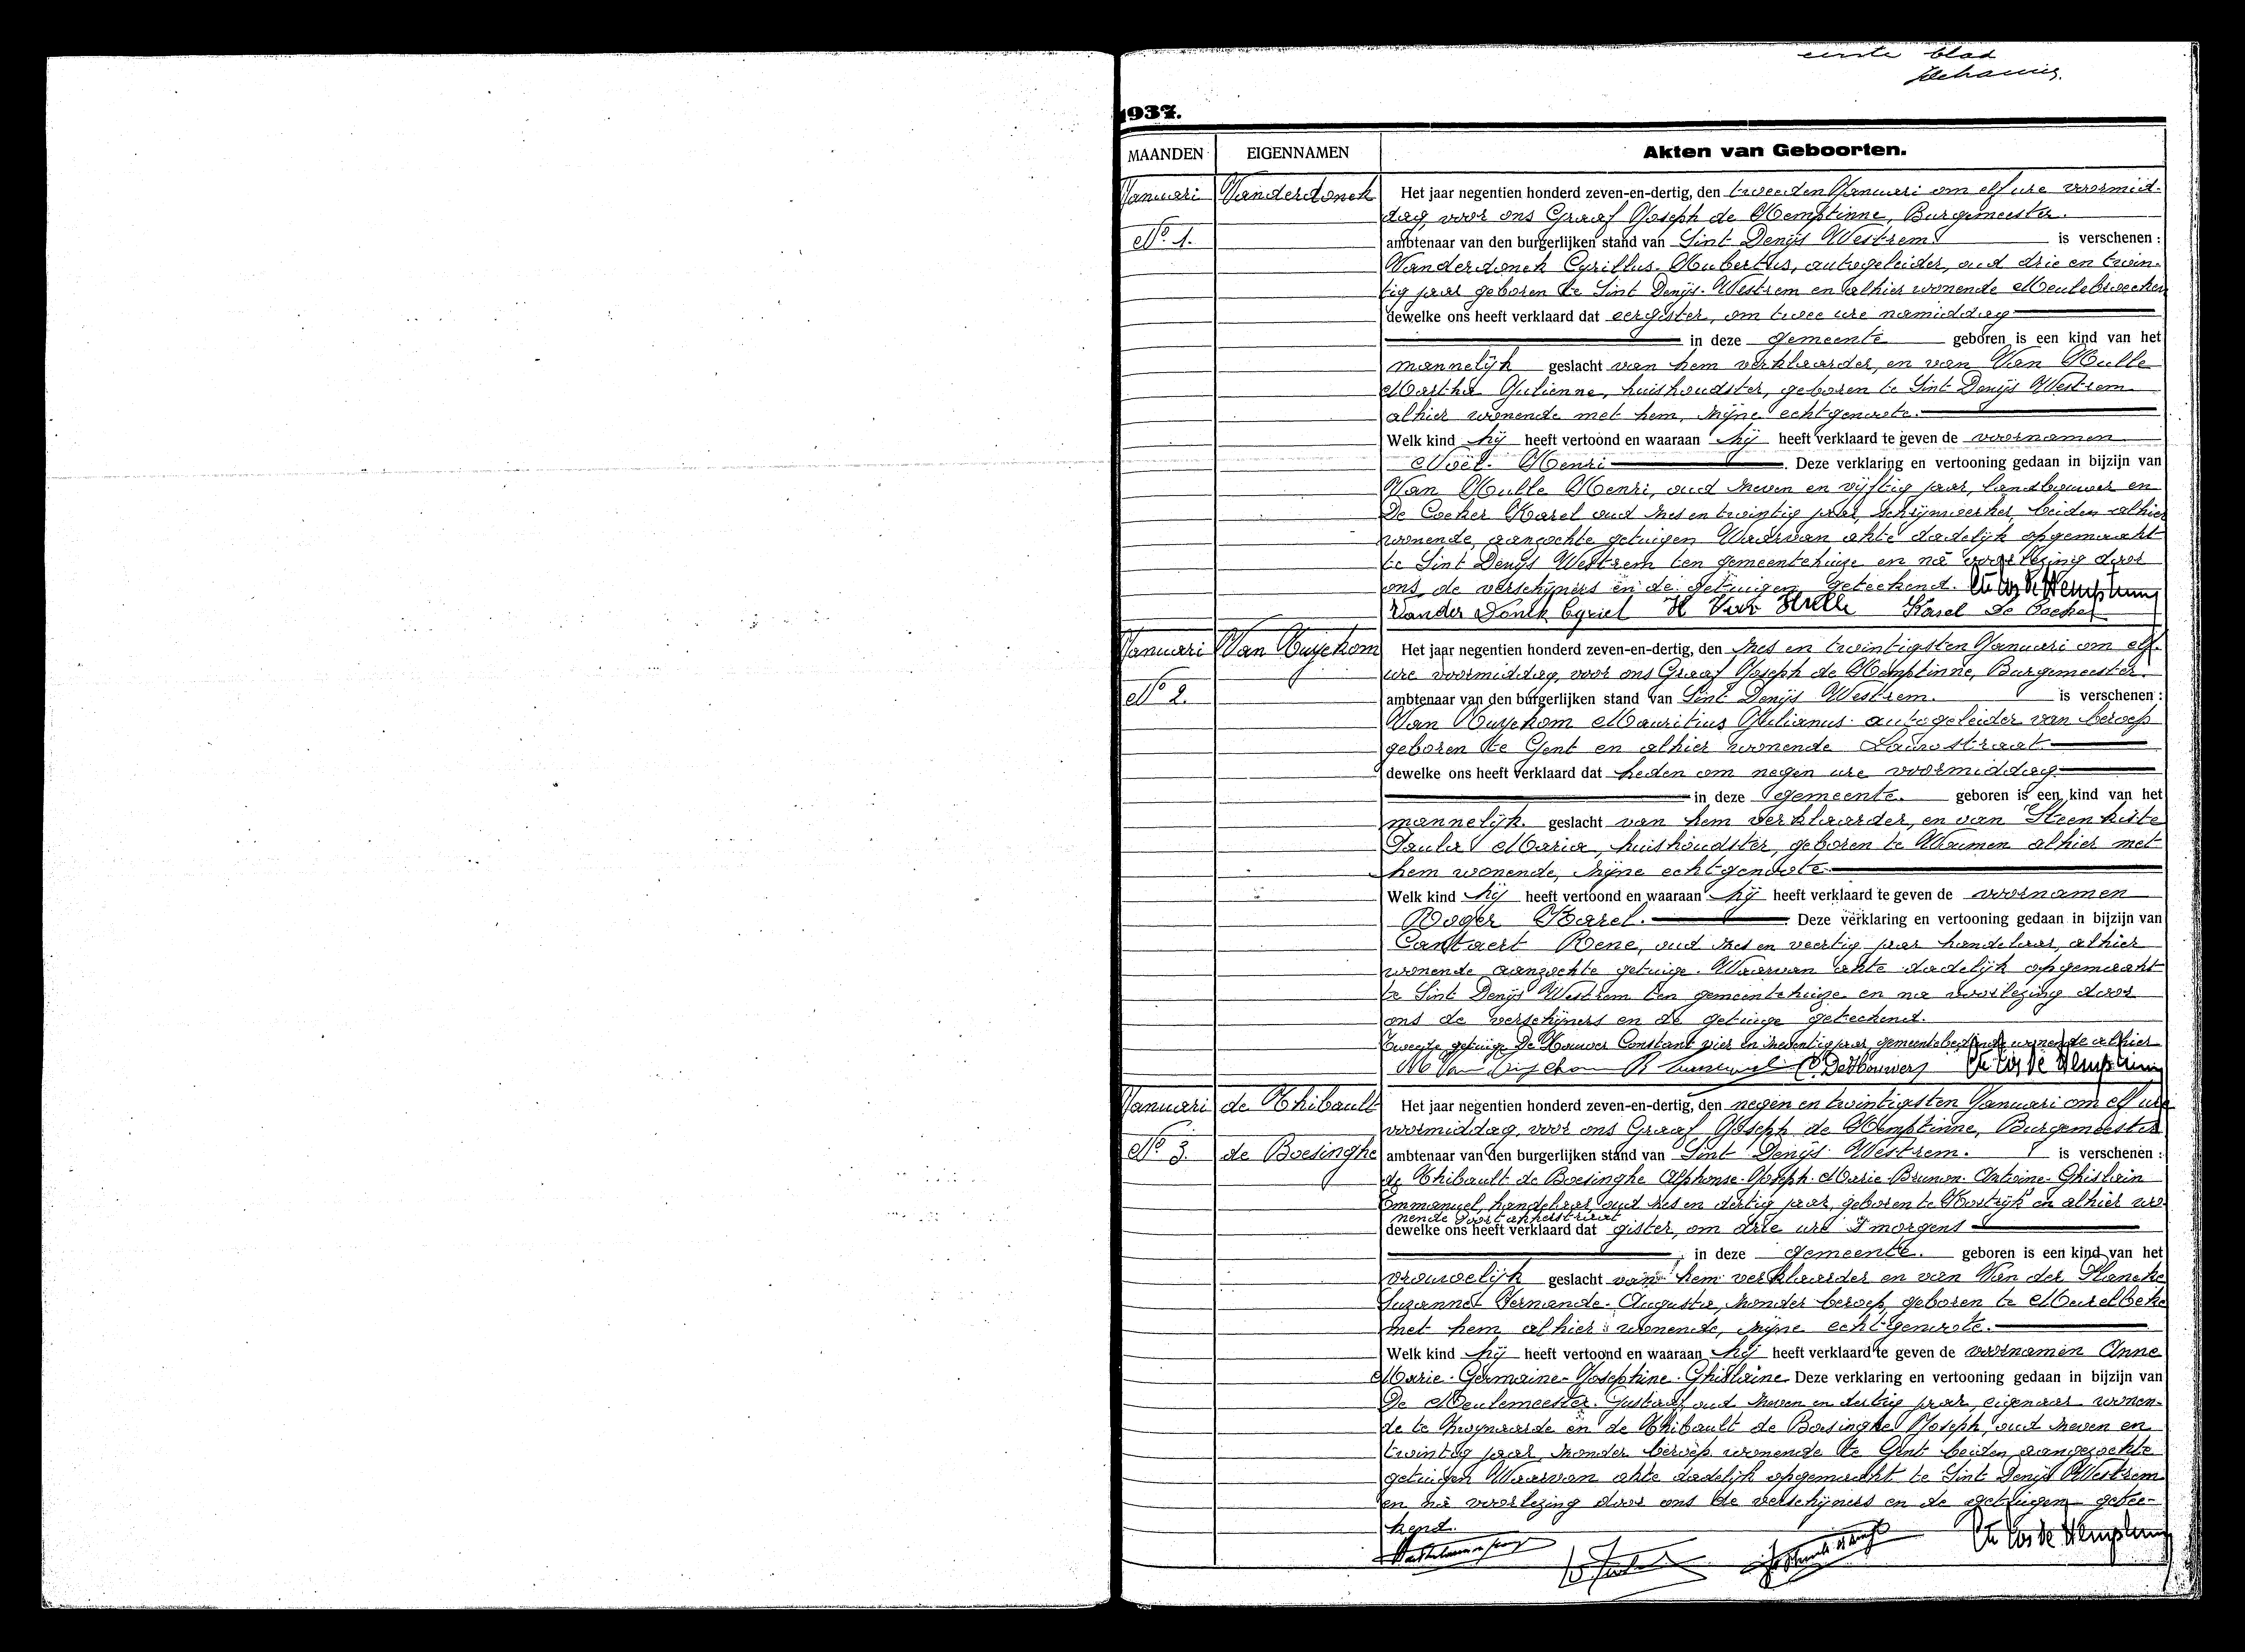 eerste blad
1937.
MAANDEN EIGENNAMEN Akten van Geboorten.
Januari Vanderdonck Het jaar negentien honderd zeven-en-dertig, den tweeden Januari om elf ure voormid-
dag, voor ons Graaf Joseph de Hemptinne, Burgemeester.
No 1. ambtenaar van den burgerlijken stand van Sint Denijs Westrem is verschenen :
Vanderdonck Cyrillus-Hubertus, autogeleider, oud drie en twin-
tig jaar geboren te Sint Denijs-Westrem en alhier wonende
dewelke ons heeft verklaard dat eergister, om twee ure namiddag
in deze gemeente geboren is een kind van het
mannelijk geslacht van hem verklaarder, en van Van Hulle
Martha Julienne, huishoudster, geboren te Sint Denijs Westrem
alhier wonende met hem, zijne echtgenoote.
Welk kind hij heeft vertoond en waaraan hij heeft verklaard te geven de voornamen
Noël-Henri. Deze verklaring en vertooning gedaan in bijzijn van
Van Hulle Henri, oud zeven en vijftig jaar, landbouwer en
De Cocker Karel oud zes en twintig jaar, schrijnwerker, beiden alhier
wonende, aangezochte getuigen Waarvan akte dadelijk opgemaakt
te Sint Denijs Westrem ten gemeentehuize en na voorlezing door
ons, de verschijners en de getuigen geteekend. Cte Jos de Hemptinne
Vander Donck Cyriel H Van Hulle Karel De Cocker
Januari Van Huychom Het jaar negentien honderd zeven-en-dertig, den zes en twintigsten Januari om elf
ure voormiddag, voor ons Graaf Joseph de Hemptinne, Burgemeester.
No 2. ambtenaar van den burgerlijken stand van Sint Denijs Westrem. is verschenen :
Van Mauritius Julianus autogeleider van beroep
geboren te Gent en alhier wonende
dewelke ons heeft verklaard dat heden om negen ure voormiddag
in deze gemeente. geboren is een kind van het
mannelijk geslacht van hem verklaarder, en van Steenkiste
Paula Maria, huishoudster, geboren te Woumen alhier met
hem wonende, zijne echtgenoote
Welk kind hij heeft vertoond en waaraan hij heeft verklaard te geven de voornamen
Roger Karel. Deze verklaring en vertooning gedaan in bijzijn van
Cantaert Rene, oud zes en veertig jaar handelaar, alhier
wonende aangezochte getuige. Waarvan akte dadelijk opgemaakt
te Sint Denijs Westrem ten gemeentehuize en na voorlezing door
ons de verschijners en de getuige geteekend.
Tweede getuige De Houwer Constant vier en zeventig jaar, gemeentebediende wonende alhier
M Van C. De Houwer Cte Jos de Hemptinne
Januari de Thibault Het jaar negentien honderd zeven-en-dertig, den negen en twintigsten Januari om elf ure
voormiddag, voor ons Graaf Joseph de Hemptinne, Burgemeester
No 3. de Boesinghe ambtenaar van den burgerlijken stand van Sint Denijs Westrem. is verschenen :
de Thibault de Boesinghe Alphonse-Joseph-Marie-Brunon-Antoine-Ghislain
Emmanuel, handelaar, oud zes en dertig jaar, geboren te Kortrijk en alhier wo-
nende
dewelke ons heeft verklaard dat gister, om drie ure 's morgens
in deze gemeente. geboren is een kind van het
vrouwelijk geslacht van hem verklaarder en van Van der Plancke
Suzanne Fernande-Augusta, zonder beroep, geboren te Meirelbeke
met hem alhier wonende, zijne echtgenoote.
Welk kind hij heeft vertoond en waaraan hij heeft verklaard te geven de voornamen Anne
Marie-Germaine-Josephine-Ghislaine Deze verklaring en vertooning gedaan in bijzijn van
De Meulemeester Gustaaf, oud zeven en dertig jaar, eigenaar wonen-
de te Zwijnaarde en de Thibault de Boesinghe Joseph, oud zeven en
twintig jaar, zonder beroep wonende te Gent beiden aangezochte
getuigen Waarvan akte dadelijk opgemaakt te Sint Denijs Westrem
en na voorlezing door ons de verschijners en de getuigen getee-
kend.
Cte Jos de Hemptinne